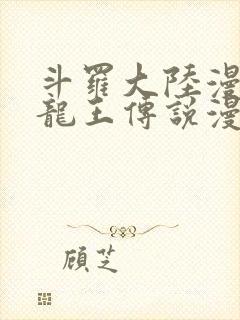 斗羅大陸漫
龍王傳説漫
顧芝